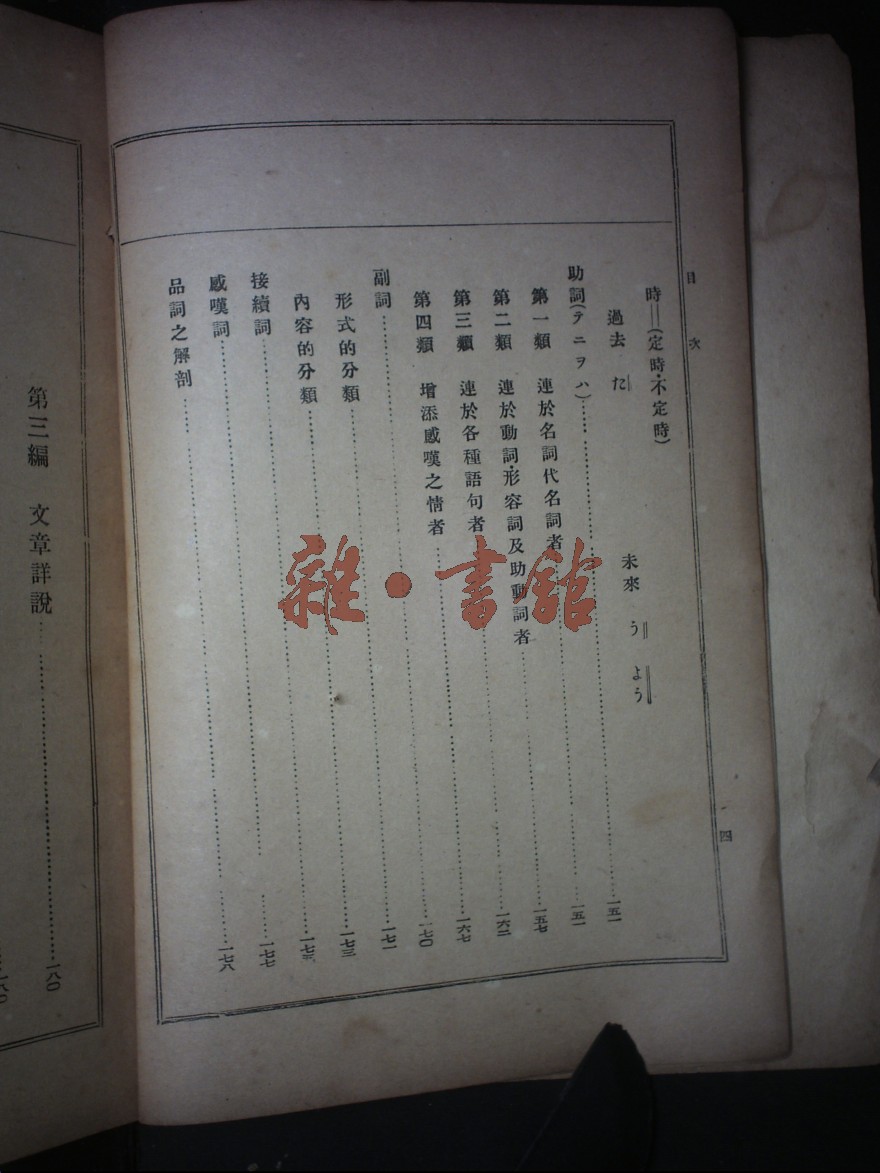 目次
四
時——(定時・不定時)
過去 た 未來 う よう
助詞(テニヲハ)……一五一
第一類 連於名詞代名詞者……一五一
第二類 連於動詞・形容詞及助動詞者……一五七
第三類 連於各種語句者……一六二
第四類 增添感嘆之情者……一六七
副詞……一七〇
形式的分類……一七一
內容的分類……一七三
接續詞……一七三
感嘆詞……一七七
品詞之解剖……一七八
第三編 文章詳說……一八〇
一八〇
雜・書館